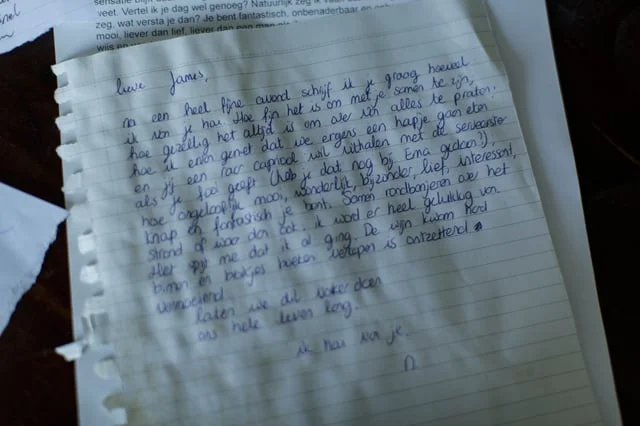 snel
sensatie blijft
veet. Vertel ik je dag wel genoeg? Natuurlijk zeg ik
zeg, wat versta je dan? Je bent fantastisch, onbenaderbaar en
mooi, liever dan lief, liever dan
wijs en
lieve James,
na een heel fijne avond schijf ik je graag hoeveel
ik van je hou. Hoe fijn het is om met je samen te zijn,
hoe gezellig het altijd is om over van alles te praten.
hoe ik ervan geniet dat we ergens een hapje gaan eten
en jij een raar wil uithalen met de serveerster
als je fooi geeft (heb je dat nog bij Ema gedaan?),
hoe ongelooflijk mooi, wonderlijk, bijzonder, lief, interessant,
knap en fantastisch je bent. Samen over het
strand of waar dan ook. ik word er heel gelukkig van
Het spijt me dat ik al ging. De wijn kwam hard
binnen en is ontzettend
vermoeiend
laten we dit vaker doen
ons hele leven lang.
ik hou van je.